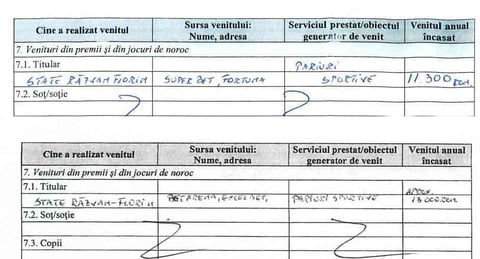 Cine a realizat venitul
Sursa venitului:
Nume, adresa
Serviciul prestat/obiectul
generator de venit
Venitul anual
încasat
7. Venituri din premii și din jocuri de noroc
7.1. Titular
PARIURI
STATE RĂZVAN FLORIN SUPERBET, FORTUNA SPORTIVE 11.300 RON.
7.2. Soț/soție
Cine a realizat venitul
Sursa venitului:
Nume, adresa
Serviciul prestat/obiectul
generator de venit
Venitul anual
încasat
7. Venituri din premii și din jocuri de noroc
7.1. Titular
APROX.
STATE RĂZVAN-FLORIN BETARENA, EXCELBET, PARIURI SPORTIVE 13 000 RON
7.2. Soț/soție
7.3. Copii